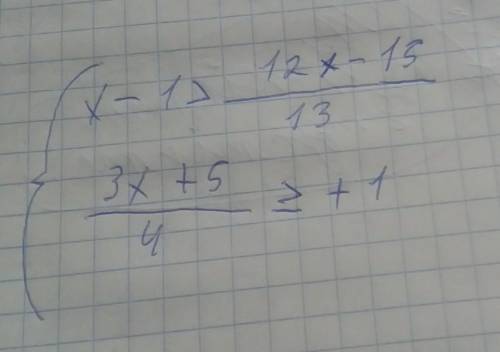 x - 1 > 12x - 15
13
3x + 5 ≥ + 1
4